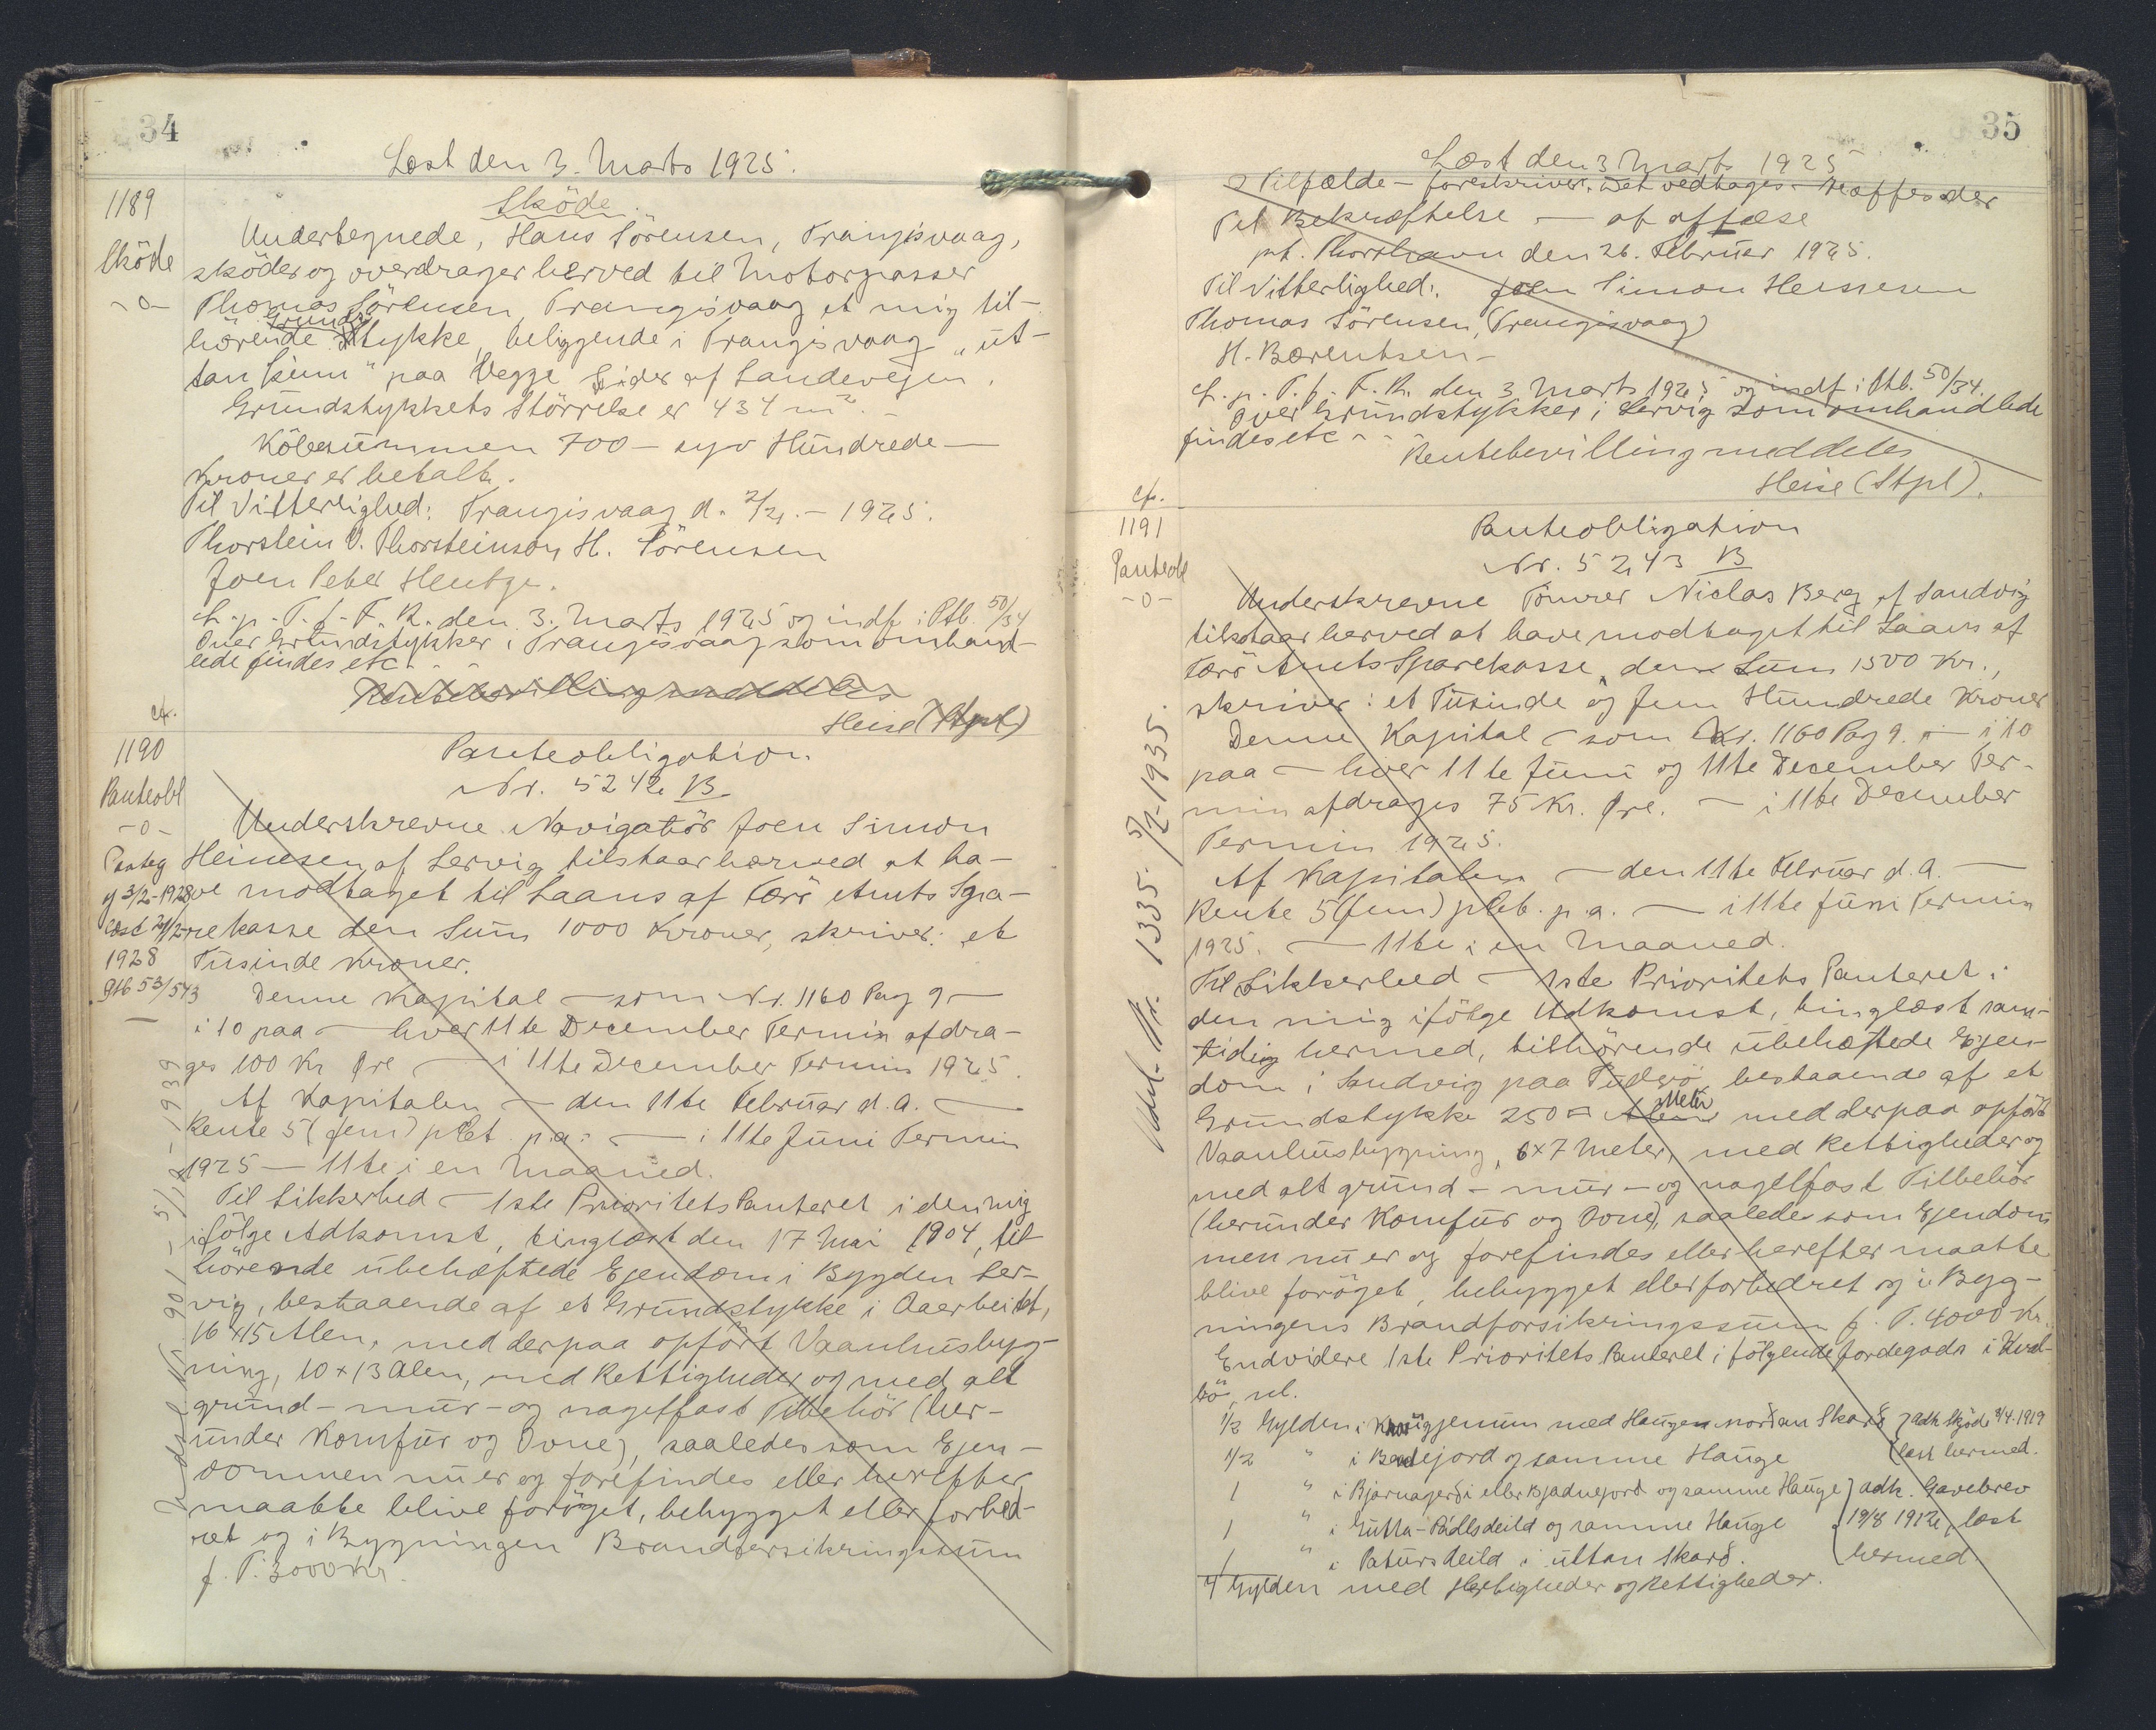 34
Læst den 3. Marts 1925.
1189
Sköde
-o-
Sköde.
Undertegnede, Hans Sörensen, Trangisvaag,
sköder og overdrager herved til Motorpasser
Thomas Sörensen, Trangisvaag et mig til-
hörende Grundstykke, beliggende i Trangisvaag "út-
tan" paa begge Sider af Landevejen.
Grundstykkets Störrelse er 434 m².-
Köbesummen 700 - syv Hundrede -
Kroner er betalt.
Til Vitterlighed: Trangisvaag d. 2/2. - 1925.
Thorstein V. Thorsteinson H. Sörensen
Joen Peter Hentze.
L. p. T. f. F. R. den 3. Marts 1925 og indf i Ptb. 50/34
Over Grundstykker i Trangisvaag som omhand-
lede findes etc - - -
Rentebevilling meddeles
Heise (Stpl)
cf.
1190
Panteobl
-o-
Panteg
af 3/2-1928
læst 21/2
1928
gtb 53/543
Panteobligation.
Nr. 5242 B
Underskrevne Navigatör Joen Simon
Heinesen af Lervig tilstaar herved at ha-
ve modtaget til Laans af Færö Amts Spa-
rekasse den Sum 1000 Kroner, skriver: et
Tusinde Kroner.
Denne Kapital - som Nr. 1160 Pag 9 -
i 10 paa - hver 11te December Termin afdra-
ges 100 Kr Øre - i 11te December Termin 1925.
Af Kapitalen - den 11te Februar d. A. -
Rente 5 (fem) pCt. p.a. - i 11te Juni Termin
1925 - 11te i en Maaned.
Til Sikkerhed - 1ste Prioritets Panteret i den mig
ifölge Adkomst, tinglæst den 17 Mai 1904, til
hörende ubehæftede Ejendom i Bygden Ler-
vig, bestaaende af et Grundstykke i Aaerbeitet,
16 x 15 Alen, med derpaa opfört Vaanhusbyg-
ning, 10 x 13 Alen, med Rettigheder og med alt
grund- mur- og nagelfast Tilbehör (her-
under Komfur og Ovne), saaledes som Ejen-
dommen nu er og forefindes eller herefter
maatte blive foröget, bebygget eller forbed-
ret og i Bygningen Brandforsikringssum
f. T. 3000 Kr.
Udsl. Nr. 901 - 5/12-1939
35
Læst den 3 Marts 1925
I Tilfælde - foreskriver. Det vedtages - træffes der
Til Bekræftelse - af
pt. Thorshavn den 26. Februar 1925.
Til Vitterlighed: Joen Simon Heinesen
Thomas Sörensen, (Trangisvaag)
H. Bærentsen -
L. p. T. f. F. R. den 3 Marts 1925 og indf i Ptb. 50/34.
Over Grundstykker i Lervig som omhandlede
findes etc - - -
Rentebevilling meddeles
Heise (Stpl).
cf.
1191
Panteobl
-o-
Panteobligation
Nr. 5243 B
Underskrevne Tömrer Niclas Berg af Sandvig
tilstaar herved at have modtaget til Laans af
Færö Amts Sparekasse, den Sum 1500 Kr.,
skriver: et Tusinde og fem Hundrede Kroner
Denne Kapital - som Nr. 1160 Pag 9. - i 10
paa - hver 11te Juni og 11te December Ter-
min afdrages 75 Kr. Øre. - i 11te December
Termin 1925.
Af Kapitalen - den 11te Februar d. A. -
Rente 5 (fem) pCt. p. a. - i 11te Juni Termin
1925. - 11te i en Maaned.
Til Sikkerhed - 1ste Prioritets Panteret i
den mig ifölge Adkomst, tinglæst sam-
tidig hermed, tilhörende ubehæftede Ejen-
dom i Sandvig paa bestaaende af et
Grundstykke 250 □ Alen Meter med derpaa opfört
Vaanhusbygning, 6 x 7 Meter, med Rettigheder og
med alt grund- mur- og nagelfast Tilbehör
(herunder Komfur og Ovne), saaledes som Ejendom
men nu er og forefindes eller herefter maatte
blive foröget, bebygget eller forbedret og i Byg-
ningens Brandforsikringssum f. T. 4000 Kr.
Endvidere 1ste Prioritets Panteret i fölgende Jordegods i Kval-
bö, nl.
1/2 Gylden i med Haugen nordan Skarð } adk. Sköde 2/4.1919
1/2 " i og samme Hauge { læst hermed.
1 " i eller Bjadnejord og samme Hauge } adk. Gavebrev
1 " i Gutta-Pádlsdeild og samme Hauge { 19/8 1912, læst
1 " i Patursdeild i uttan Skarð. { hermed.
4 Gylden med Herligheder og Rettigheder.
Udsl. Nr. 1335. 5/12-1935.